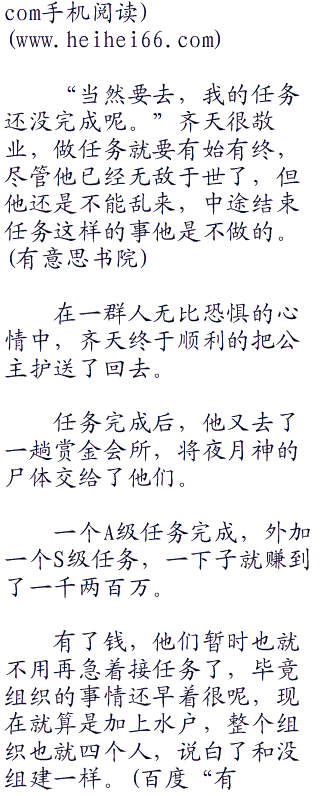 com手机阅读)
(www.heihei66.com)
“当然要去，我的任务
还没完成呢。”齐天很敬
业，做任务就要有始有终，
尽管他已经无敌于世了，但
他还是不能乱来，中途结束
任务这样的事他是不做的。
(有意思书院)
在一群人无比恐惧的心
情中，齐天终于顺利的把公
主护送了回去。
任务完成后，他又去了
一趟赏金会所，将夜月神的
尸体交给了他们。
一个A级任务完成，外加
一个S级任务，一下子就赚到
了一千两百万。
有了钱，他们暂时也就
不用再急着接任务了，毕竟
组织的事情还早着很呢，现
在就算是加上水户，整个组
织也就四个人，说白了和没
组建一样。(百度“有